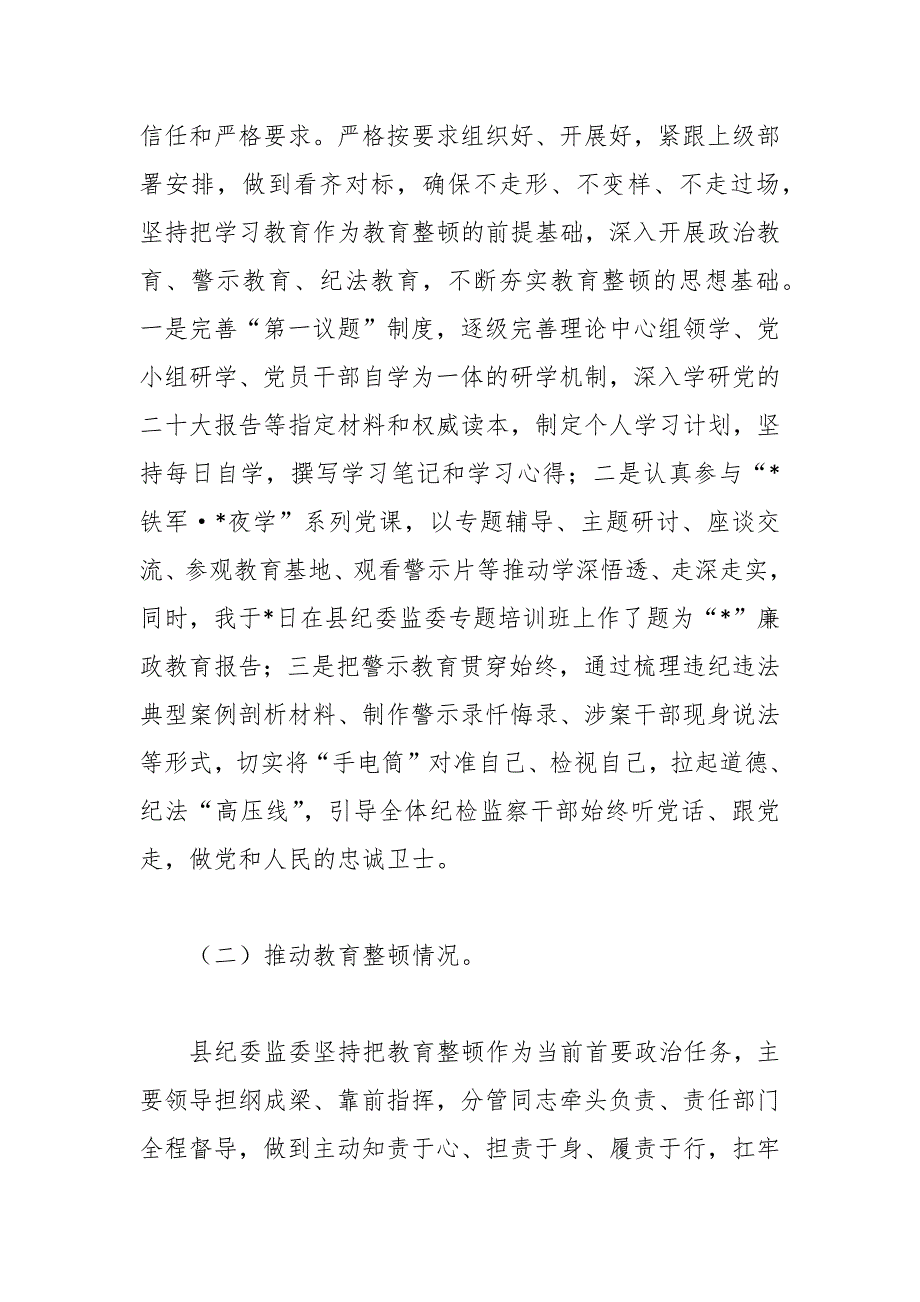 信任和严格要求。严格按要求组织好、开展好，紧跟上级部
署安排，做到看齐对标，确保不走形、不变样、不走过场，
坚持把学习教育作为教育整顿的前提基础，深入开展政治教
育、警示教育、纪法教育，不断夯实教育整顿的思想基础。
一是完善“第一议题”制度，逐级完善理论中心组领学、党
小组研学、党员干部自学为一体的研学机制，深入学研党的
二十大报告等指定材料和权威读本，制定个人学习计划，坚
持每日自学，撰写学习笔记和学习心得；二是认真参与“*
铁军·*夜学”系列党课，以专题辅导、主题研讨、座谈交
流、参观教育基地、观看警示片等推动学深悟透、走深走实，
同时，我于*日在县纪委监委专题培训班上作了题为“*”廉
政教育报告；三是把警示教育贯穿始终，通过梳理违纪违法
典型案例剖析材料、制作警示录忏悔录、涉案干部现身说法
等形式，切实将“手电筒”对准自己、检视自己，拉起道德、
纪法“高压线”，引导全体纪检监察干部始终听党话、跟党
走，做党和人民的忠诚卫士。
（二）推动教育整顿情况。
县纪委监委坚持把教育整顿作为当前首要政治任务，主
要领导担纲成梁、靠前指挥，分管同志牵头负责、责任部门
全程督导，做到主动知责于心、担责于身、履责于行，扛牢